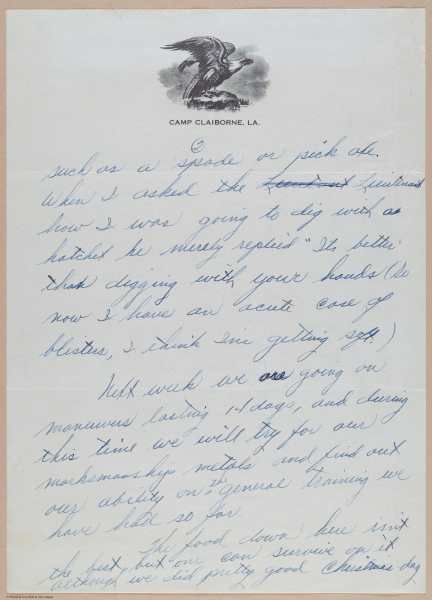 CAMP CLAIBORNE, LA.
②
such as a spade or pick axe.
When I asked the Lieutenant
how I was going to dig with a
hatchet he merely replied "Its better
than digging with your hands (So
now I have an acute case of
blisters, I think I'm getting soft.)
Next week we are going on
maneuvers lasting 14 days, and during
this time we will try for our
marksmanship metals and find out
our ability on the general training we
have had so far.
The food down here isn't
the best but one can survive on it
although we did pretty good Christmas day